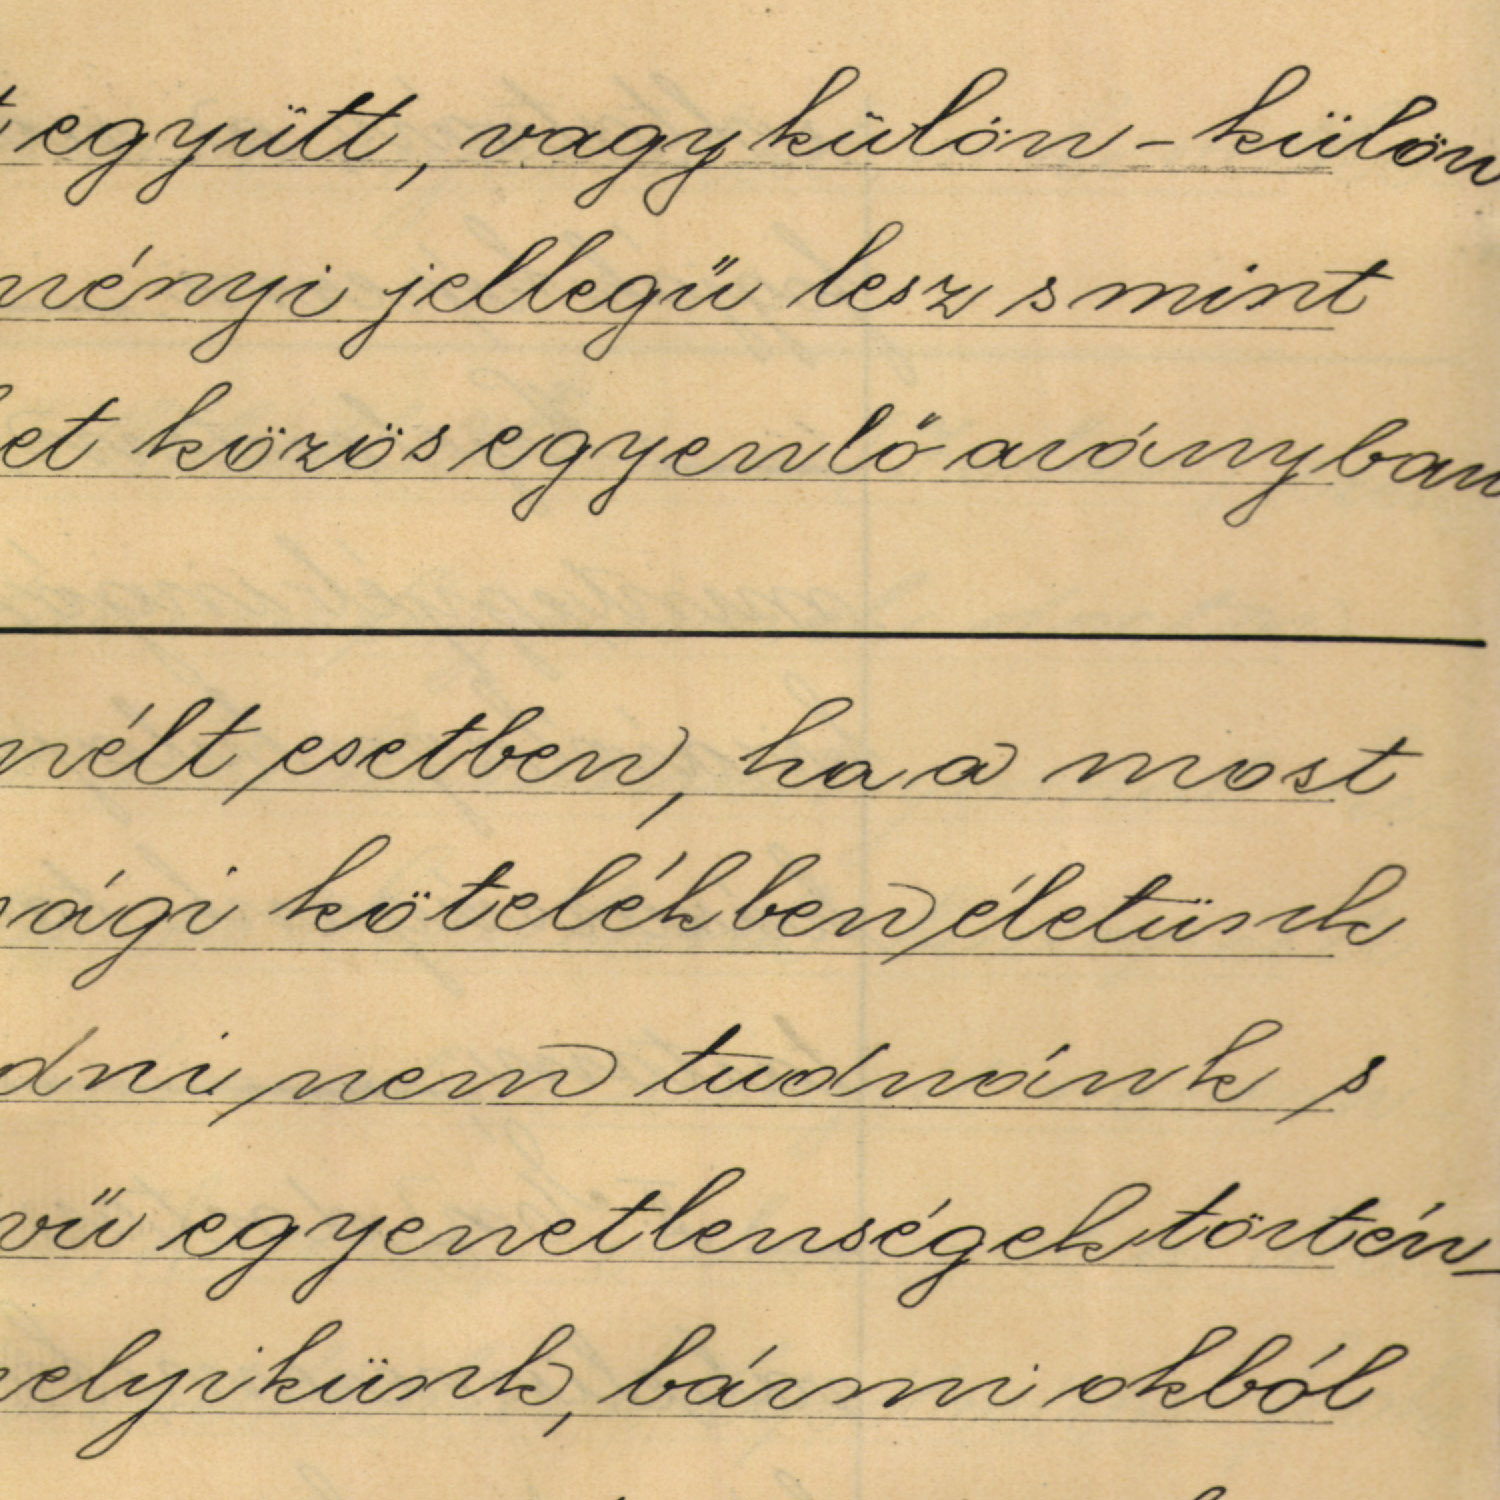 t együtt, vagy külön-külön
ményi jellegű lesz s mint
et közös egyenlő arányban
nélt esetben, ha a most
sági kötelékben életünk
dni nem tudnánk s
vű egyenetlenségek történ-
elyikünk, bármi okból